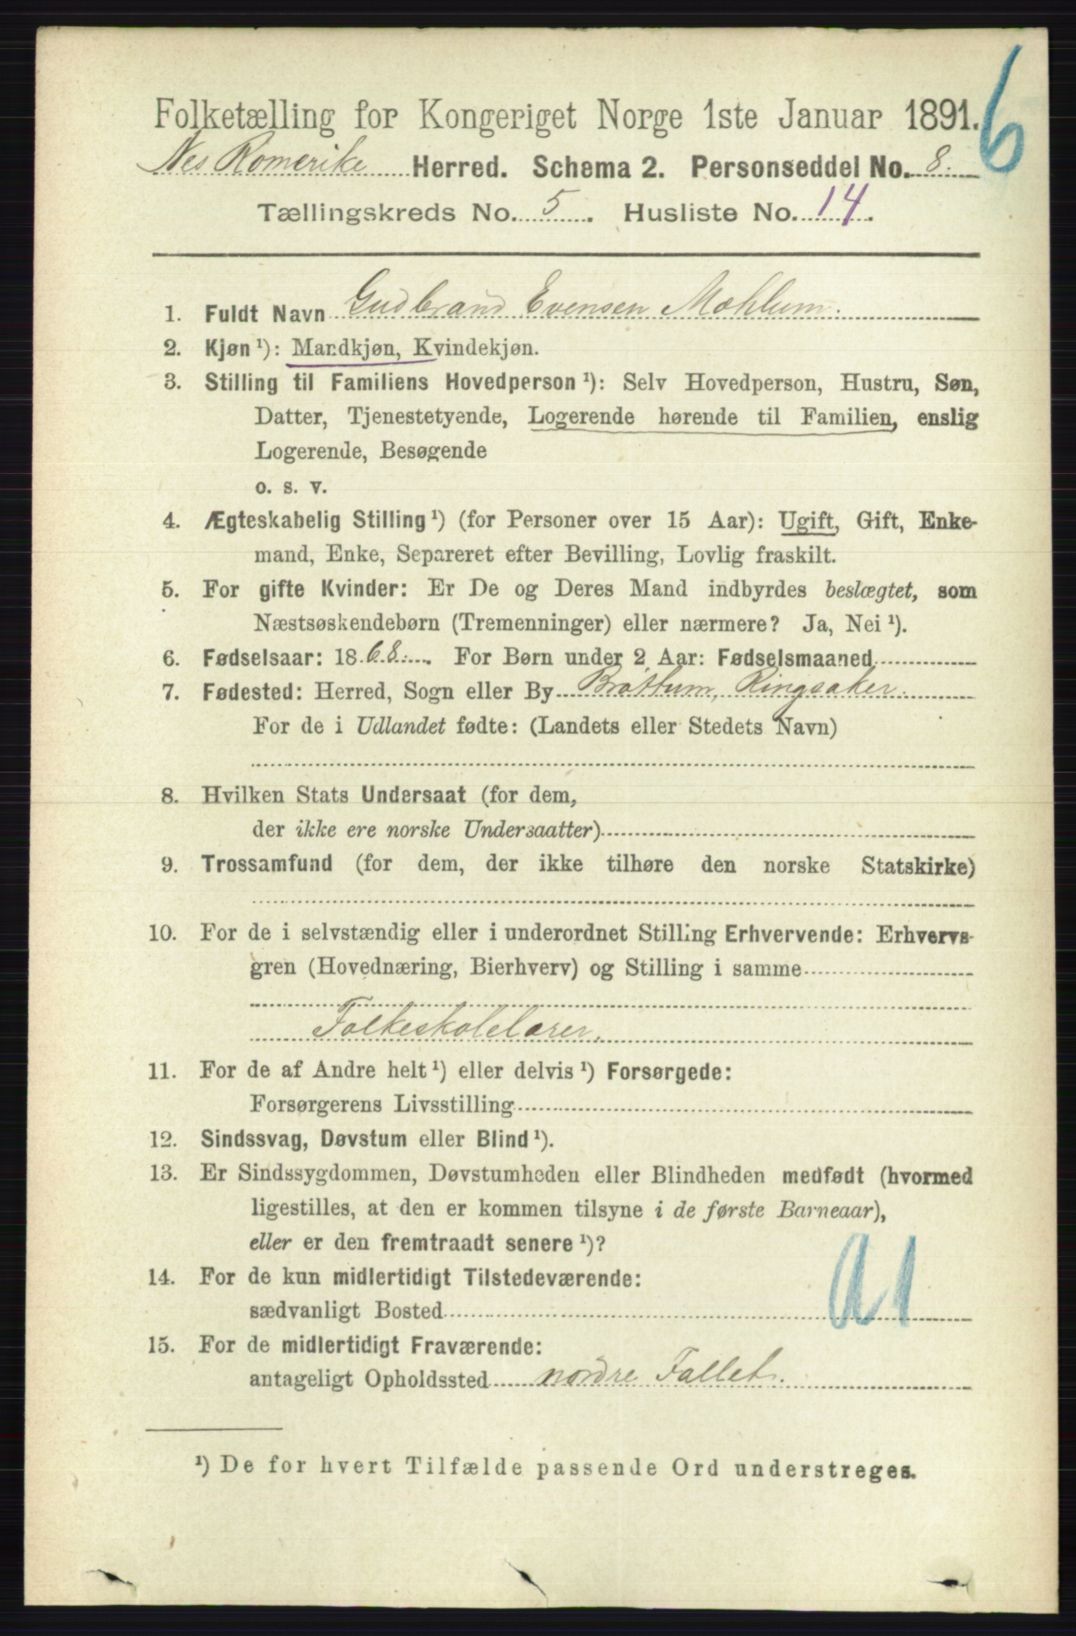 6
Folketælling for Kongeriget Norge 1ste Januar 1891.
Nes Romerike Herred. Schema 2. Personseddel No. 8.
Tællingskreds No. 5. Husliste No. 14.
1. Fuldt Navn Gudbrand Evensen Mæhlum.
2. Kjøn ¹): Mandkjøn, Kvindekjøn.
3. Stilling til Familiens Hovedperson ¹): Selv Hovedperson, Hustru, Søn,
Datter, Tjenestetyende, Logerende hørende til Familien, enslig
Logerende, Besøgende
o. s. v.
4. Ægteskabelig Stilling ¹) (for Personer over 15 Aar): Ugift, Gift, Enke-
mand, Enke, Separeret efter Bevilling, Lovlig fraskilt.
5. For gifte Kvinder: Er De og Deres Mand indbyrdes beslægtet, som
Næstsøskendebørn (Tremenninger) eller nærmere? Ja, Nei ¹).
6. Fødselsaar: 1868. For Børn under 2 Aar: Fødselsmaaned
7. Fødested: Herred, Sogn eller By Brøttum, Ringsaker.
For de i Udlandet fødte: (Landets eller Stedets Navn)
8. Hvilken Stats Undersaat (for dem,
der ikke ere norske Undersaatter)
9. Trossamfund (for dem, der ikke tilhøre den norske Statskirke)
10. For de i selvstændig eller i underordnet Stilling Erhvervende: Erhvervs-
gren (Hovednæring, Bierhverv) og Stilling i samme
Folkeskolelærer.
11. For de af Andre helt ¹) eller delvis ¹) Forsørgede:
Forsørgerens Livsstilling
12. Sindssvag, Døvstum eller Blind ¹).
13. Er Sindssygdommen, Døvstumheden eller Blindheden medfødt (hvormed
ligestilles, at den er kommen tilsyne i de første Barneaar),
eller er den fremtraadt senere ¹)?
14. For de kun midlertidigt Tilstedeværende:
sædvanligt Bosted
15. For de midlertidigt Fraværende:
antageligt Opholdssted nordre Fallet.
¹) De for hvert Tilfælde passende Ord understreges.